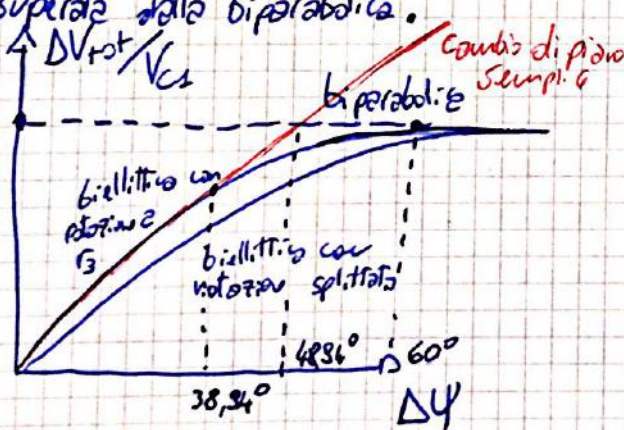 superata dalla biparabolica.
ΔVtot/Vc1
cambio di piano
semplice
biparabolica
biellittico con
rotazione a
r3
biellittico con
rotazion splittata
38,94°
48,94°
60°
Δψ